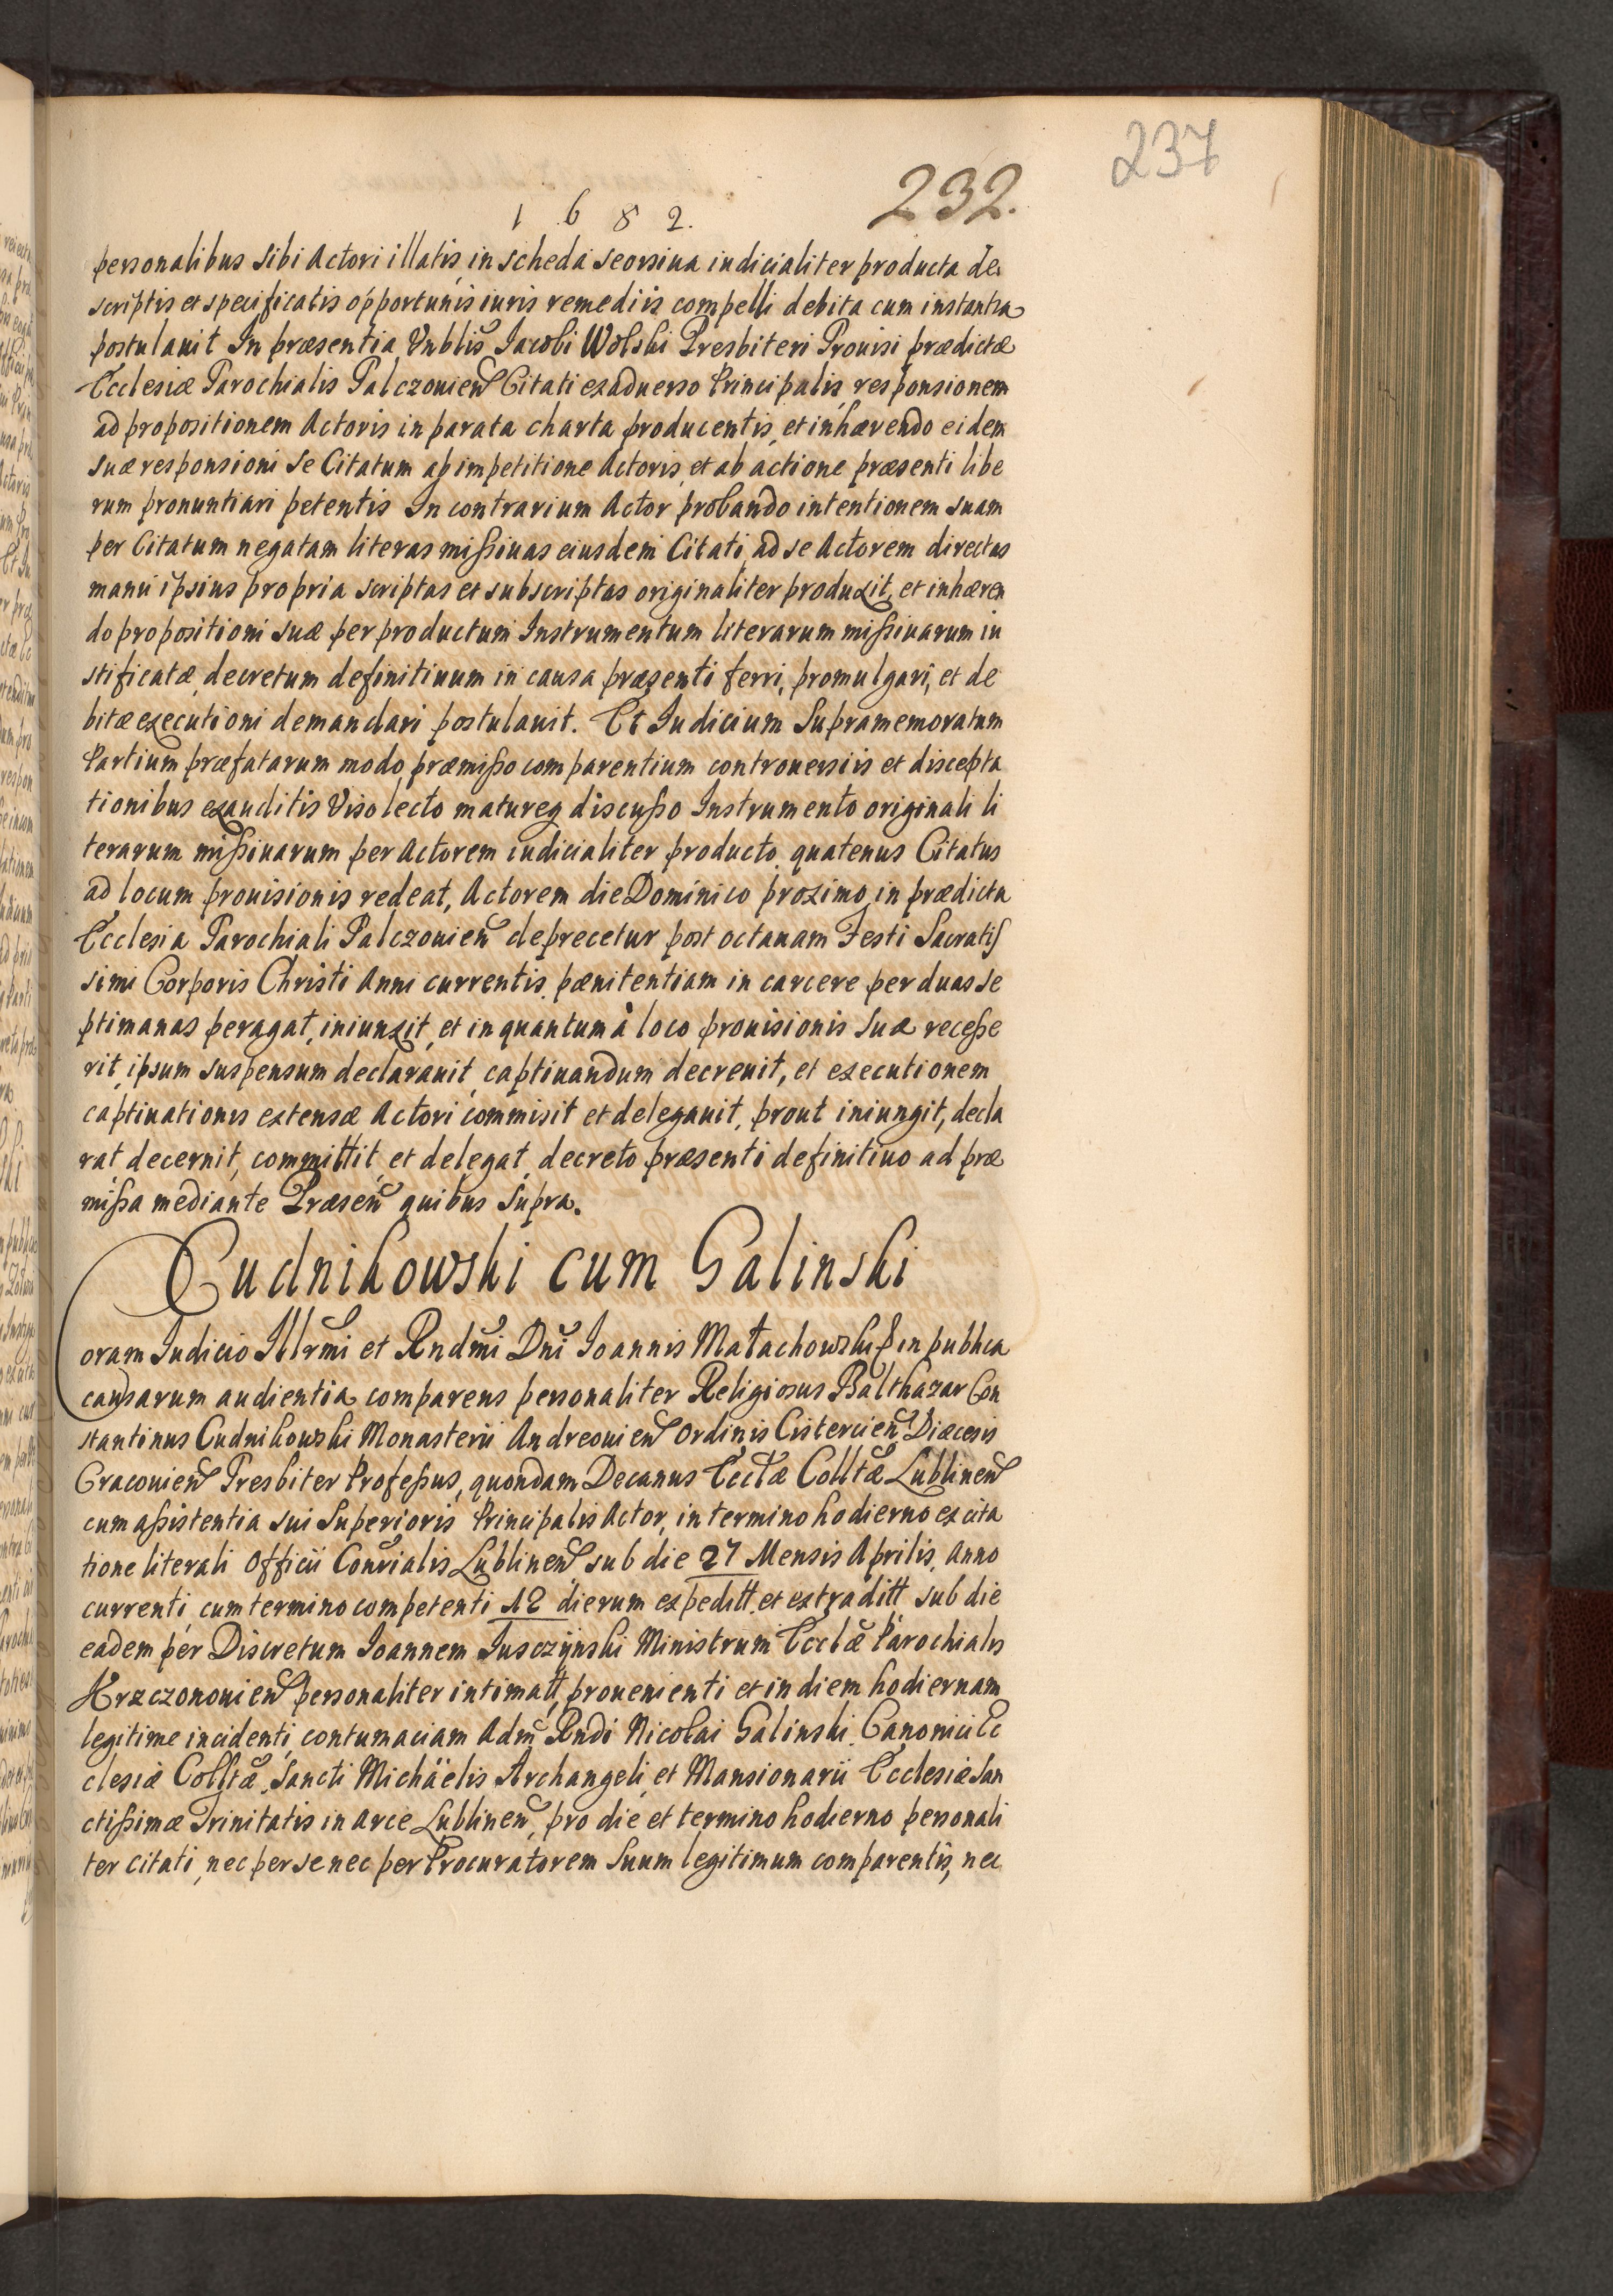 237
232.
1 6 8 2.
personalibus sibi Actori illatis, in scheda seorsiua iudicialiter producta de
scriptis et specificatis opportunis iuris remediis compelli debita cum instantia
postulauit In præsentia Vnblis Iacobi Wolski Presbiteri Prouisi prædictæ
Ecclesiæ Parochialis Palczouien Citati exaduerso Principalis, responsionem
ad propositionem Actoris in parata charta producentis, et inhærendo eidem
suæ responsioni se Citatum ab impetitione Actoris, et ab actione præsenti libe
rum pronuntiari petentis In contrarium Actor probando intentionem suam
per Citatum negatam literas missiuas eiusdem Citati, ad se Actorem directas
manu ipsius propria scriptas et subscriptas originaliter produxit, et inhæren
do propositioni suæ per productum Instrumentum literarum missiuarum iu
stificatæ, decretum definitiuum in causa præsenti ferri, promulgari, et de
bitæ executioni demandari postulauit. Et Iudicium Supramemoratum
Partium præfatarum modo præmisso comparentium controuersiis et discepta
tionibus exauditis Viso lecto matureq discusso Instrumento originali li
terarum missiuarum per Actorem iudicialiter producto, quatenus Citatus
ad locum prouisionis redeat, Actorem die Dominico proximo, in prædicta
Ecclesia Parochiali Palczouien deprecetur post octauam Festi Sacratis
simi Corporis Christi Anni currentis, pænitentiam in carcere per duas se
ptimanas peragat, iniunxit, et in quantum à loco prouisionis suæ recesse
rit, ipsum suspensum declarauit, captiuandum decreuit, et executionem
captiuationis extensæ Actori commisit et delegauit, prout iniungit, decla
rat, decernit, committit, et delegat, decreto præsenti definitiuo ad præ
missa mediante Præsen quibus supra.
Cudnikowski cum Galinski
Coram Iudicio Illrmi et Rndmi Dni Ioannis Małachowski in publica
causarum audientia comparens personaliter Religiosus Balthazar Con
stantinus Cudnikowski Monasterii Andreouien Ordinis Cistercien Diæcesis
Cracouien Presbiter Professus, quondam Decanus Ecclæ Colltæ Lublinen
cum assistentia sui Superioris Principalis Actor, in termino hodierno ex cita
tione literali Officii Consialis Lublinen sub die 27 Mensis Aprilis, Anno
currenti cum termino competenti 12 dierum expeditt, et extraditt sub die
eadem per Discretum Ioannem Iusczynski Ministrum Ecclæ Parochialis
Krzczonouien personaliter intimatt, prouenienti et in diem hodiernam
legitime incidenti, contumaciam Adm Rndi Nicolai Galinski, Canonici Ec
clesiæ Colltæ, Sancti Michäelis Archangeli, et Mansionarii Ecclesiæ San
ctissimæ Trinitatis in Arce Lublinen, pro die et termino hodierno personali
ter citati, nec per se nec per Procuratorem suum legitimum comparentis, nec